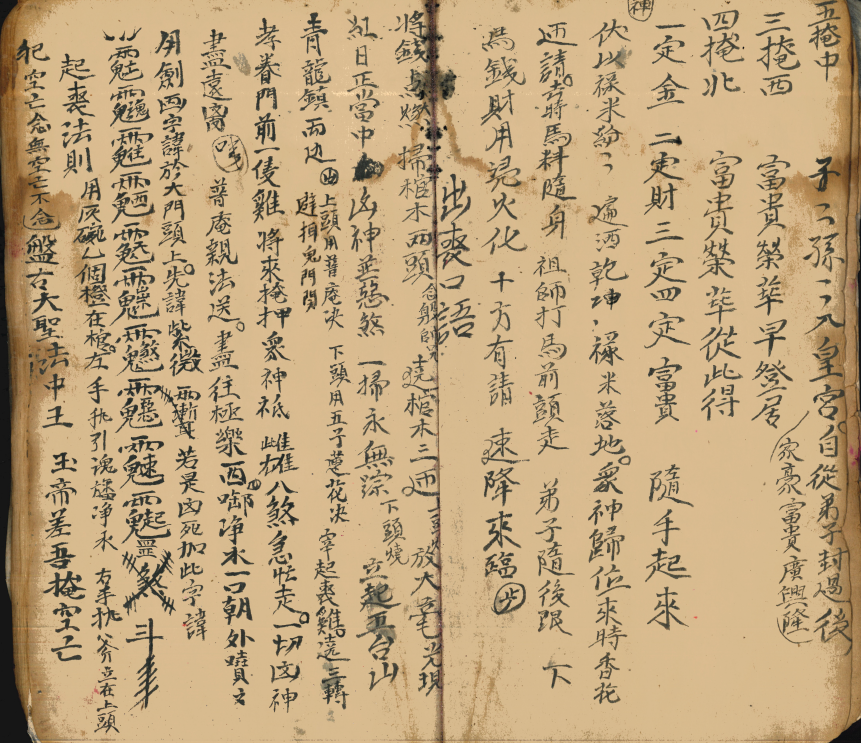 五掩中　子ミ孫ミ入皇宮。自從弟子封過後
家豪富貴廣興隆
三掩西　富貴榮華早登居
四掩北　富貴榮華從此得
一定金　二定財三定四定富貴　隨手起來
神
伏以祿米紛ミ　遍洒乾坤ミ祿米落地。眾神歸位來時香花
迎請。去時馬料隨身　祖師打馬前頭走　弟子隨後跟　下
馬錢財用凭火化　十方有請　速降來臨
出喪口語
將錢馬燃　掃棺木兩頭　遶棺木三迊　放大毫光現
紅日正當中　凶神並惡煞　一掃永無踪　下頭燒　立起五台山
青龍鎮兩边　上頭用普庵决　避捐鬼門関　下頭用五子蓮花决　宰起喪雞。遠三轉
孝眷門前一隻雞　將來掩押眾神祇　雌雄八煞急忙走。一切凶神
盡遠离　普庵親法送。盡往極樂西　啣净水一口朝外噴文
用劍画字諱於大門頭上。先諱紫微　若是凶死加此字諱
煞　斗
起喪法則　用灰碗乙個橙在棺。左手执引魂旛净水　右手执斧立在上頭
犯空亡念無空亡不念　盤古大聖法中王　玉帝差吾掩空亡